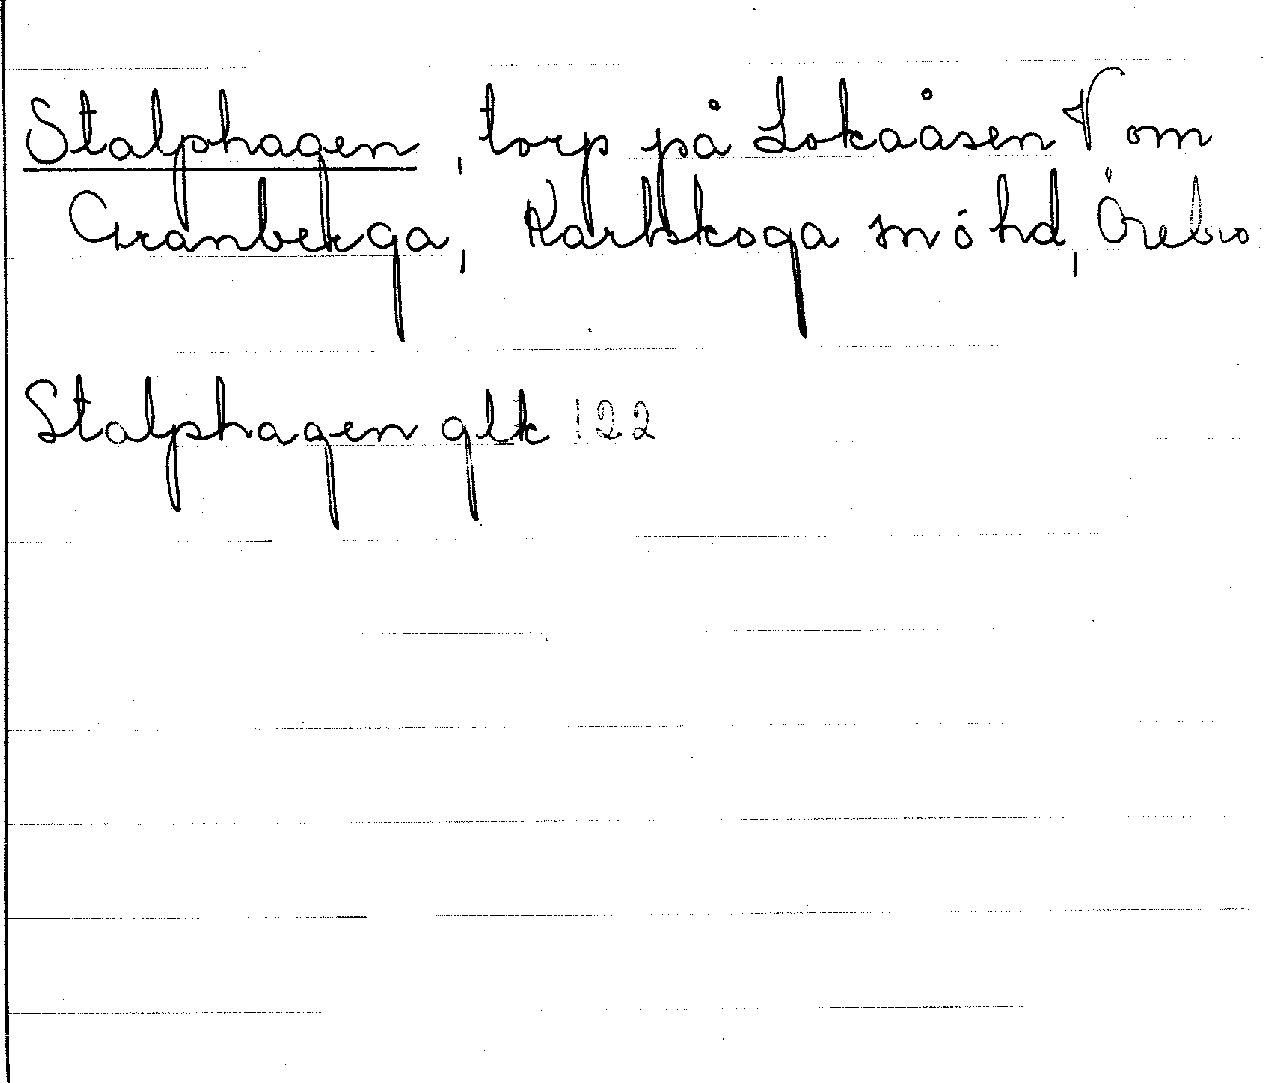 Stalphagen, torp på Lokaåsen V om
Granberga, Karlskoga sn o hd, Örebro
Stalphagen glk 122